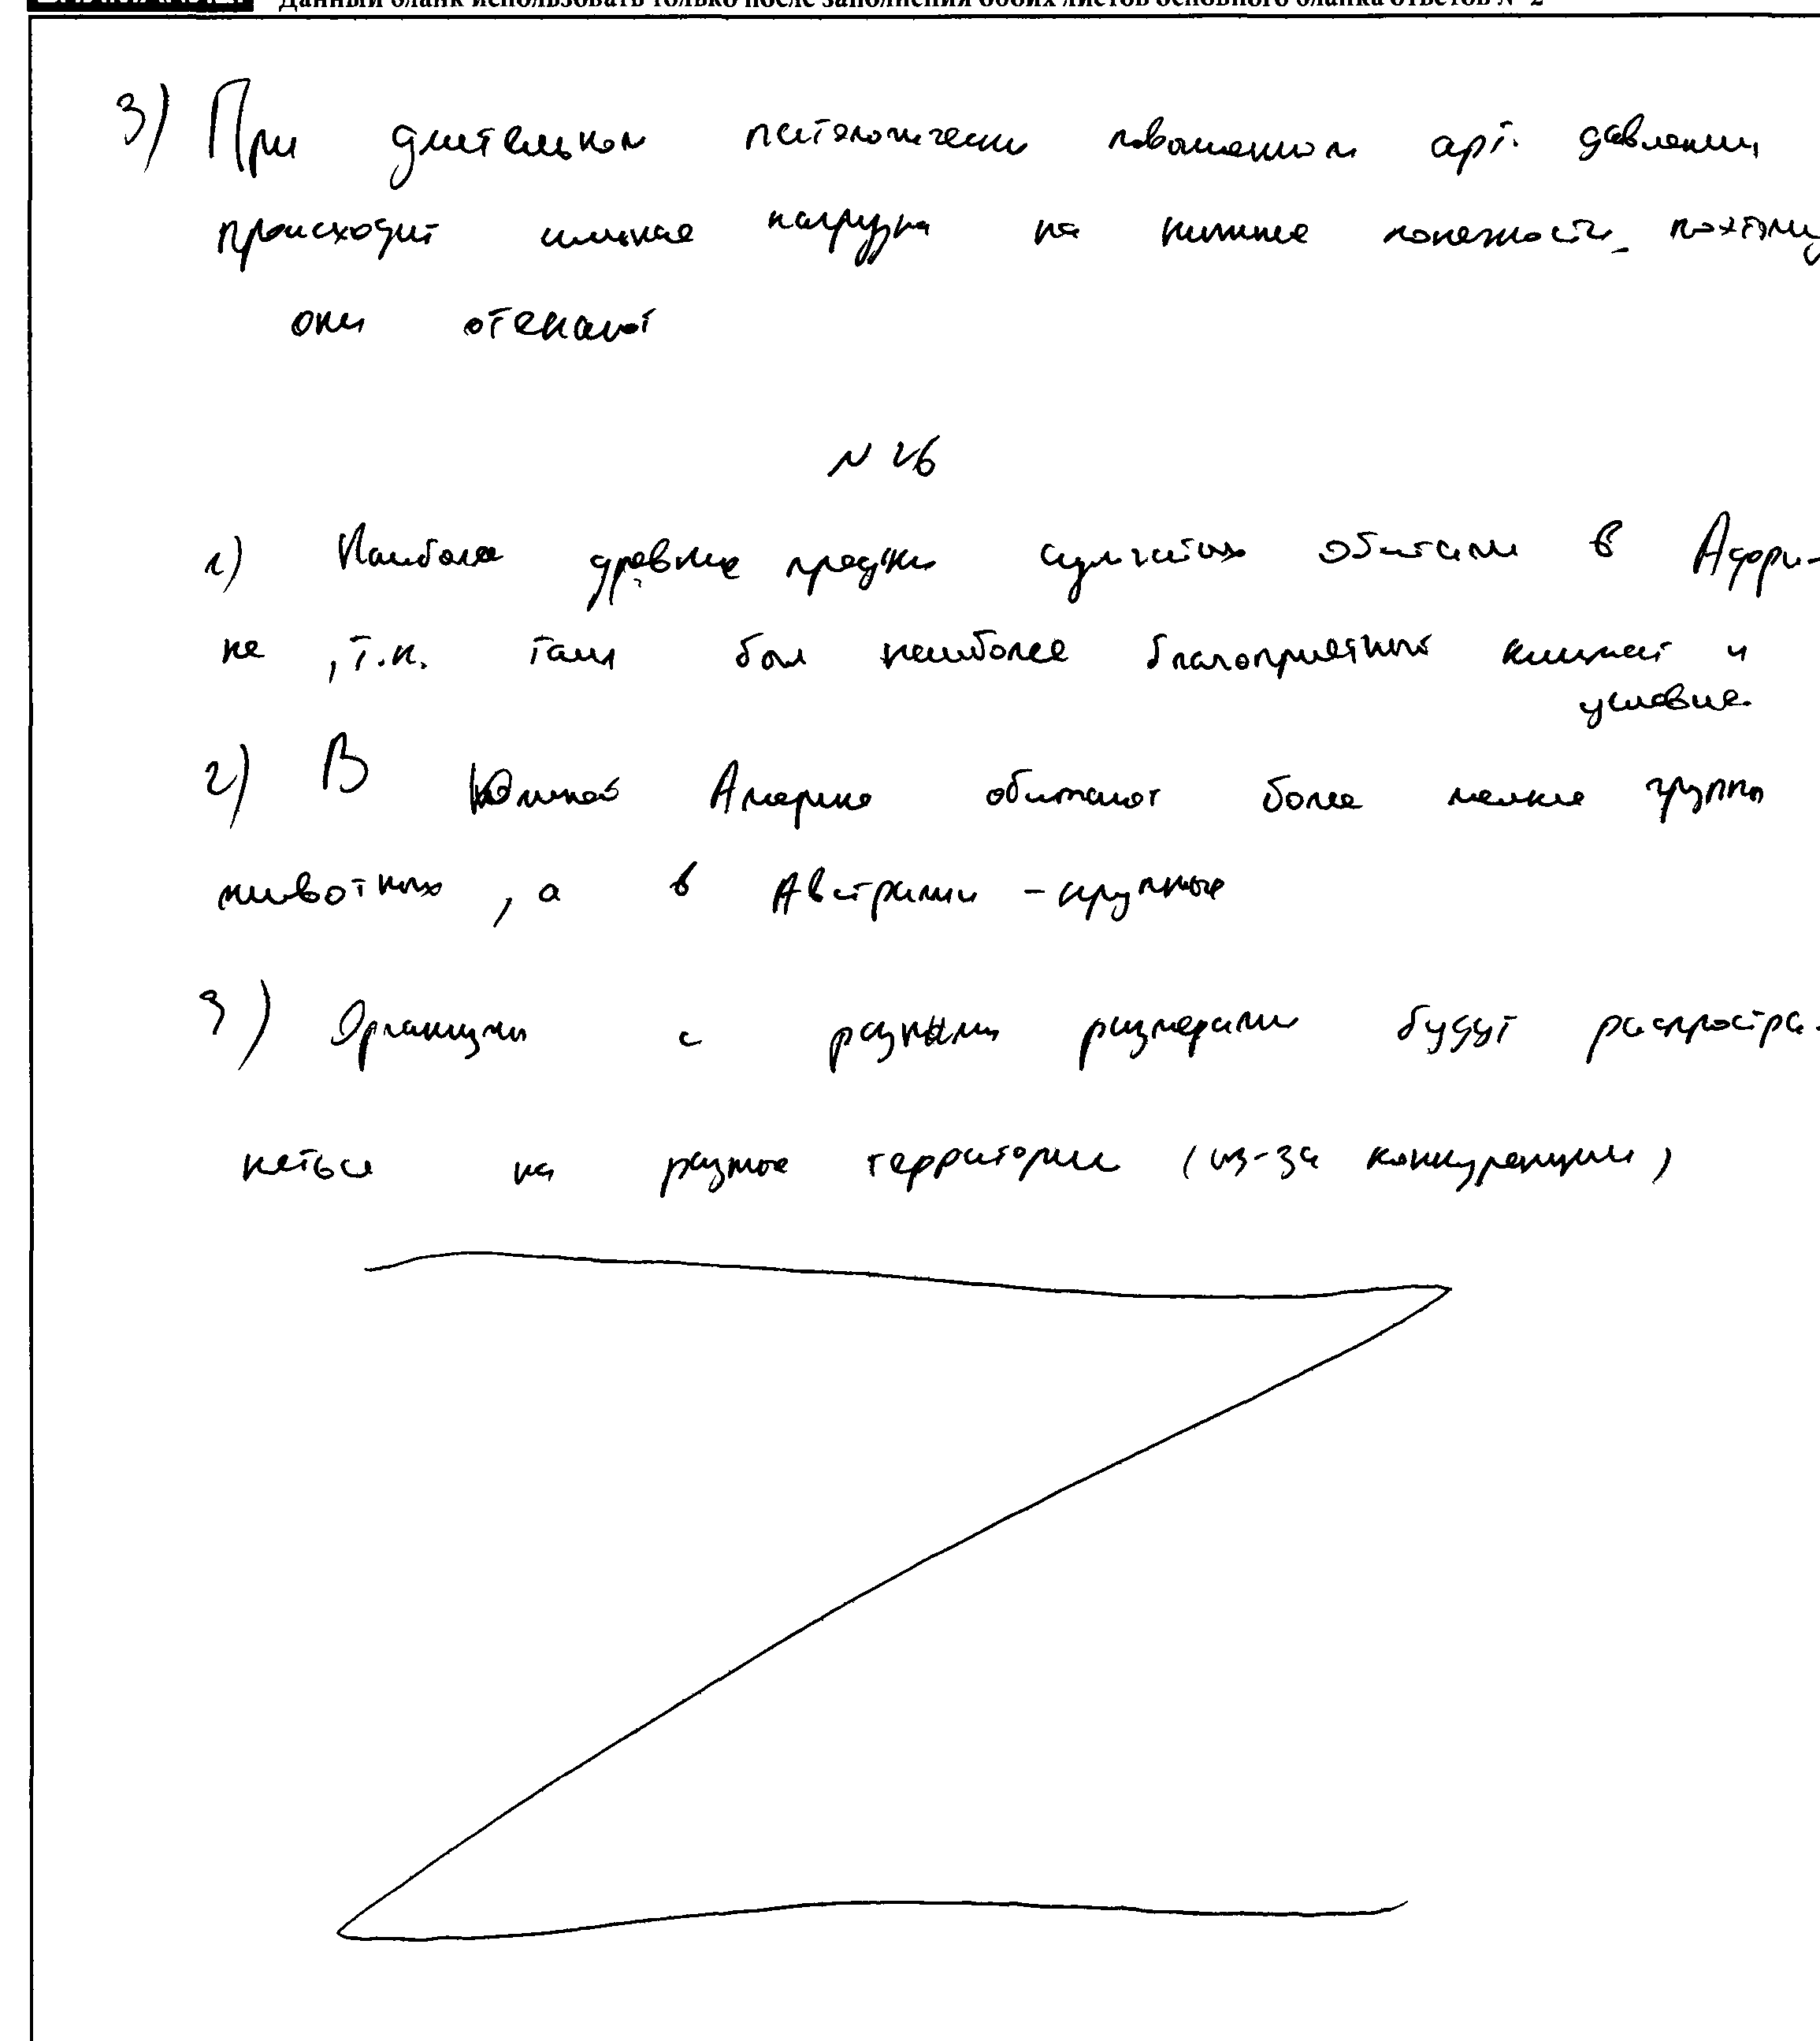 Данный бланк использовать только после заполнения обоих листов основного бланка ответов № 2
3) При длительном патологически повышенном арт. давлении
происходит сильная нагрузка на нижние конечности, поэтому
они отекают
№ 26
1) Наиболее древние предки сумчатых обитали в Афри-
ке, т.к. там был наиболее благоприятный климат и
условие.
2) В Южной Америке обитают более мелкие группы
животных, а в Австралии - крупные
3) Организмы с разными размерами будут распростра-
няться на разные территории (из-за конкуренции)